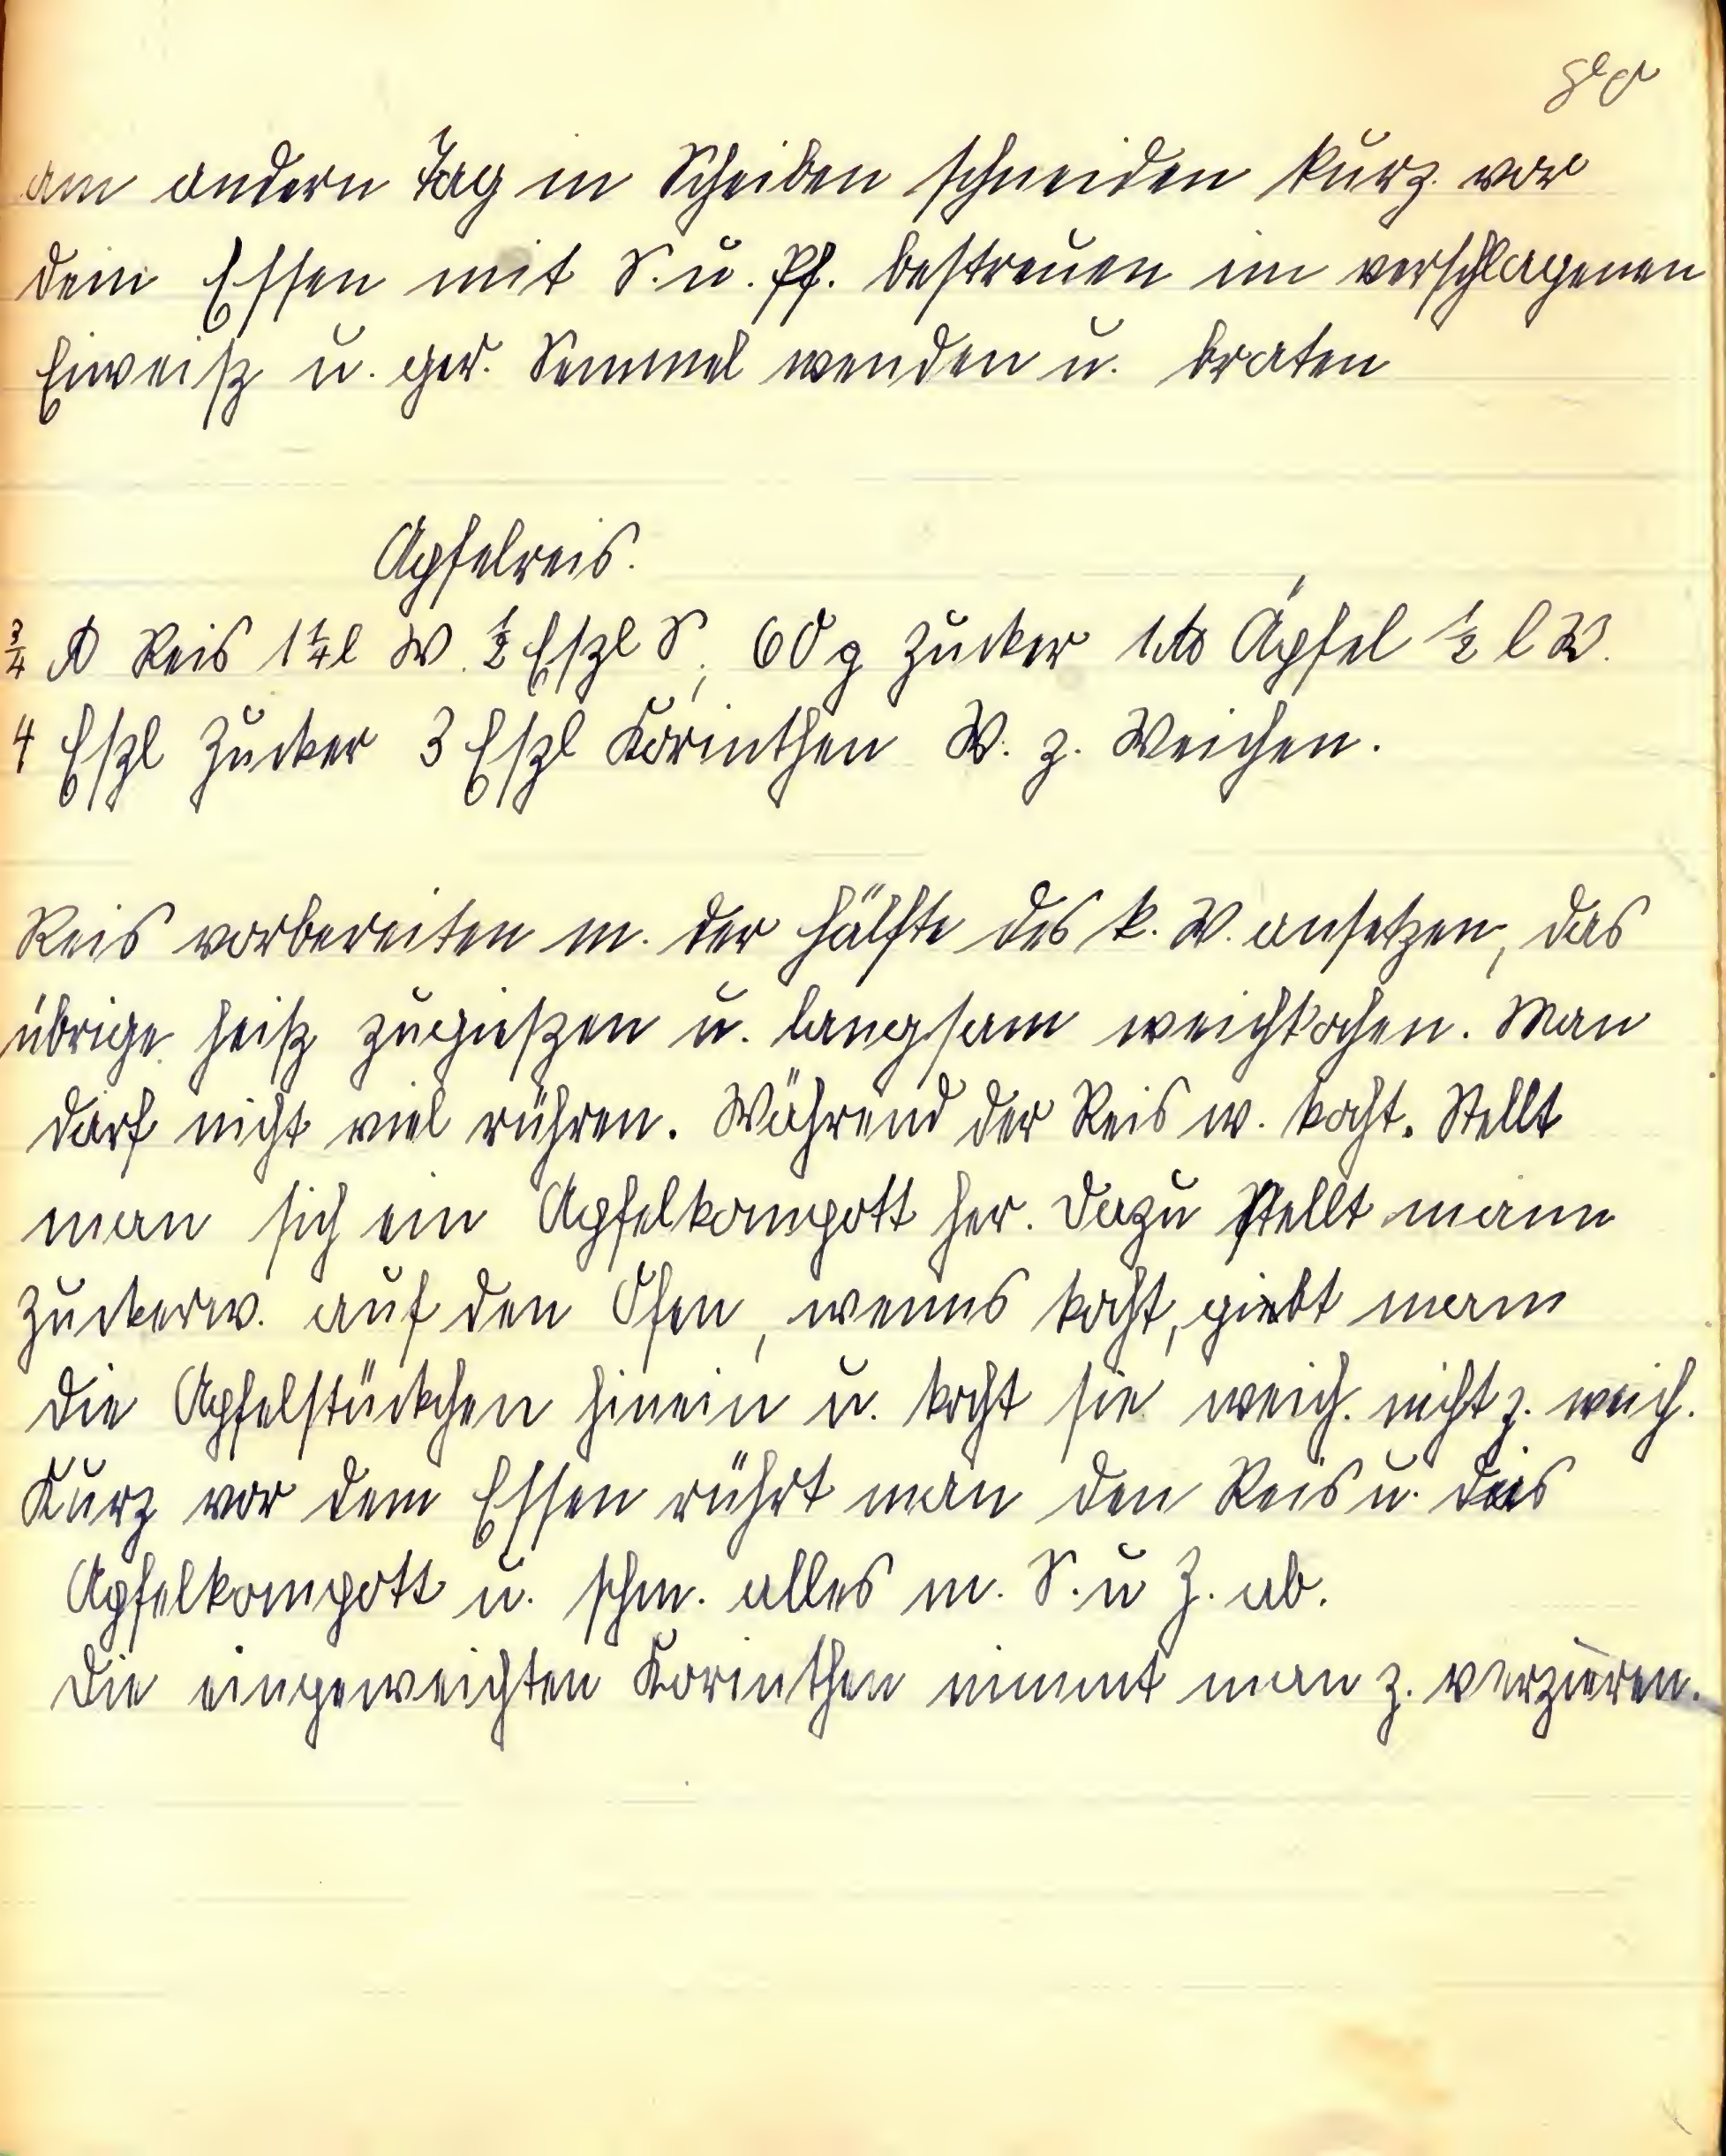 am andern Tag in Scheiben schneiden kurz vor
dem Essen mit S. u. Pf. bestreuen im verschlagenen
Eiweiß u. ger. Semmel wenden u. braten
Apfelreis.
¾ ℔ Reis 1¼ l W. ½ Eßl S, 60 g Zucker 1 ℔ Äpfel ½ l W.
4 Eßl Zucker 3 Eßl Korinthen W. z. Weichen.
Reis vorbereiten m. der Hälfte des k. W. ansetzen, das
übrige heiß zugießen u. langsam weichkochen. Man
darf nicht viel rühren. Während der Reis w. kocht. Stellt
man sich ein Apfelkompott her. Dazu stellt mann
Zuckerw. auf den Ofen, wenns kocht, giebt mann
die Apfelstückchen hinein u. kocht sie weich. nicht z. weich.
Kurz vor dem Essen rührt man den Reis u. das
Apfelkompott u. schm. alles m. S. u Z. ab.
Die eingeweichten Korinthen nimmt man z. verzieren.